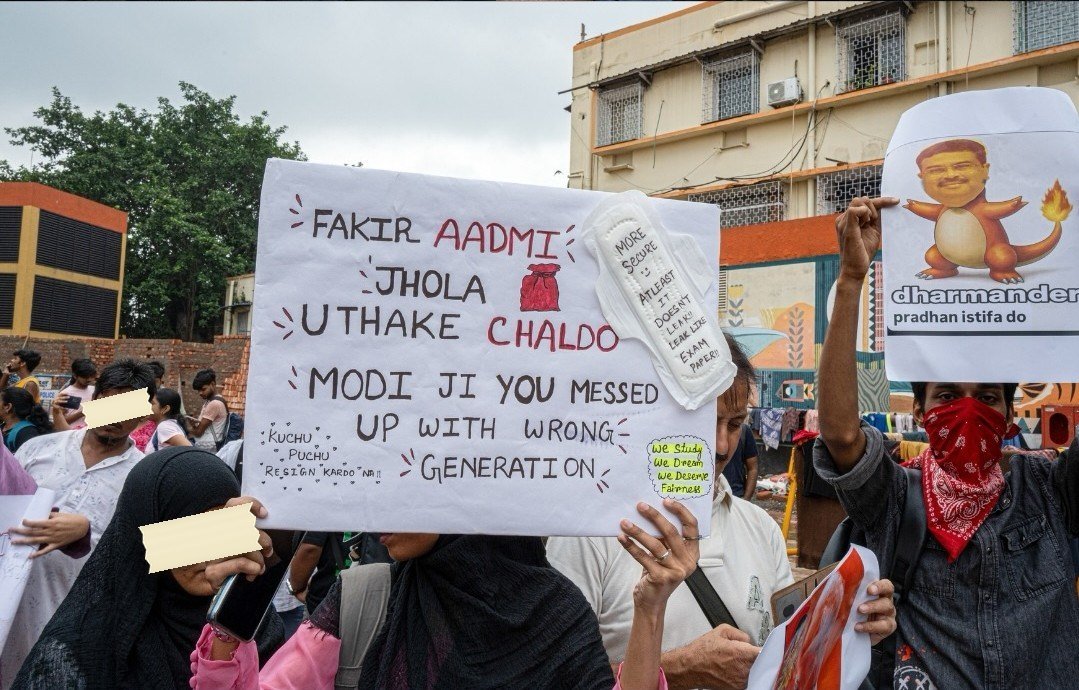 FAKIR AADMI
JHOLA
UTHAKE CHALDO
MODI JI YOU MESSED
UP WITH WRONG
GENERATION
KUCHU
PUCHU
RESIGN KARDO NA!!
We Study
We Dream
We Deserve
Fairness
MORE
SECURE
ATLEAST
IT
DOESN'T
LEAK!!
LEAK LIKE
EXAM
PAPER!!
dharmander
pradhan istifa do